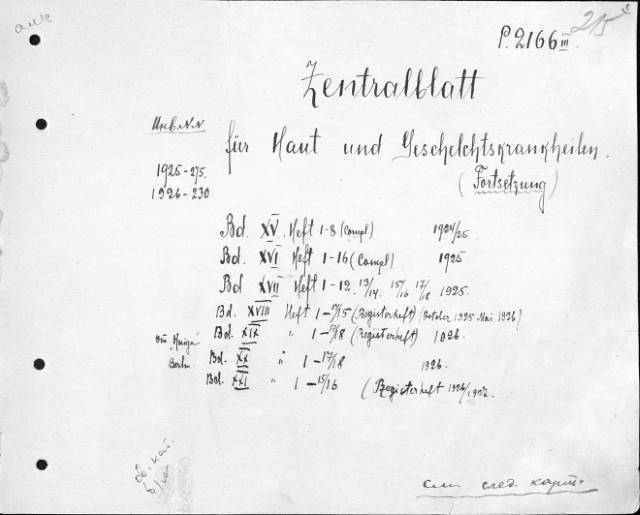 215
P. 2166 III
Zentralblatt
Инв. N.N
für Haut und Geschelchtskrankheiten.
1925-275.
(Fortsetzung)
1926-230
Bd. XV. Heft 1-8 (Compl) 1924/25.
Bd. XVI Heft 1-16 (Compl) 1925
Bd XVII Heft 1-12. 13/14. 15/16 17/18 1925.
Bd. XVIII Heft 1- /15 (Registerheft) (October 1925 Mai 1926)
Bd. XIX " 1- /18 (Registerheft) 1926.
Bd. XX " 1-17/18 1926.
Berlin
Bd. XXI " 1-15/16 (Registerheft 1926/1927.
об. кат.
см. след. карт.